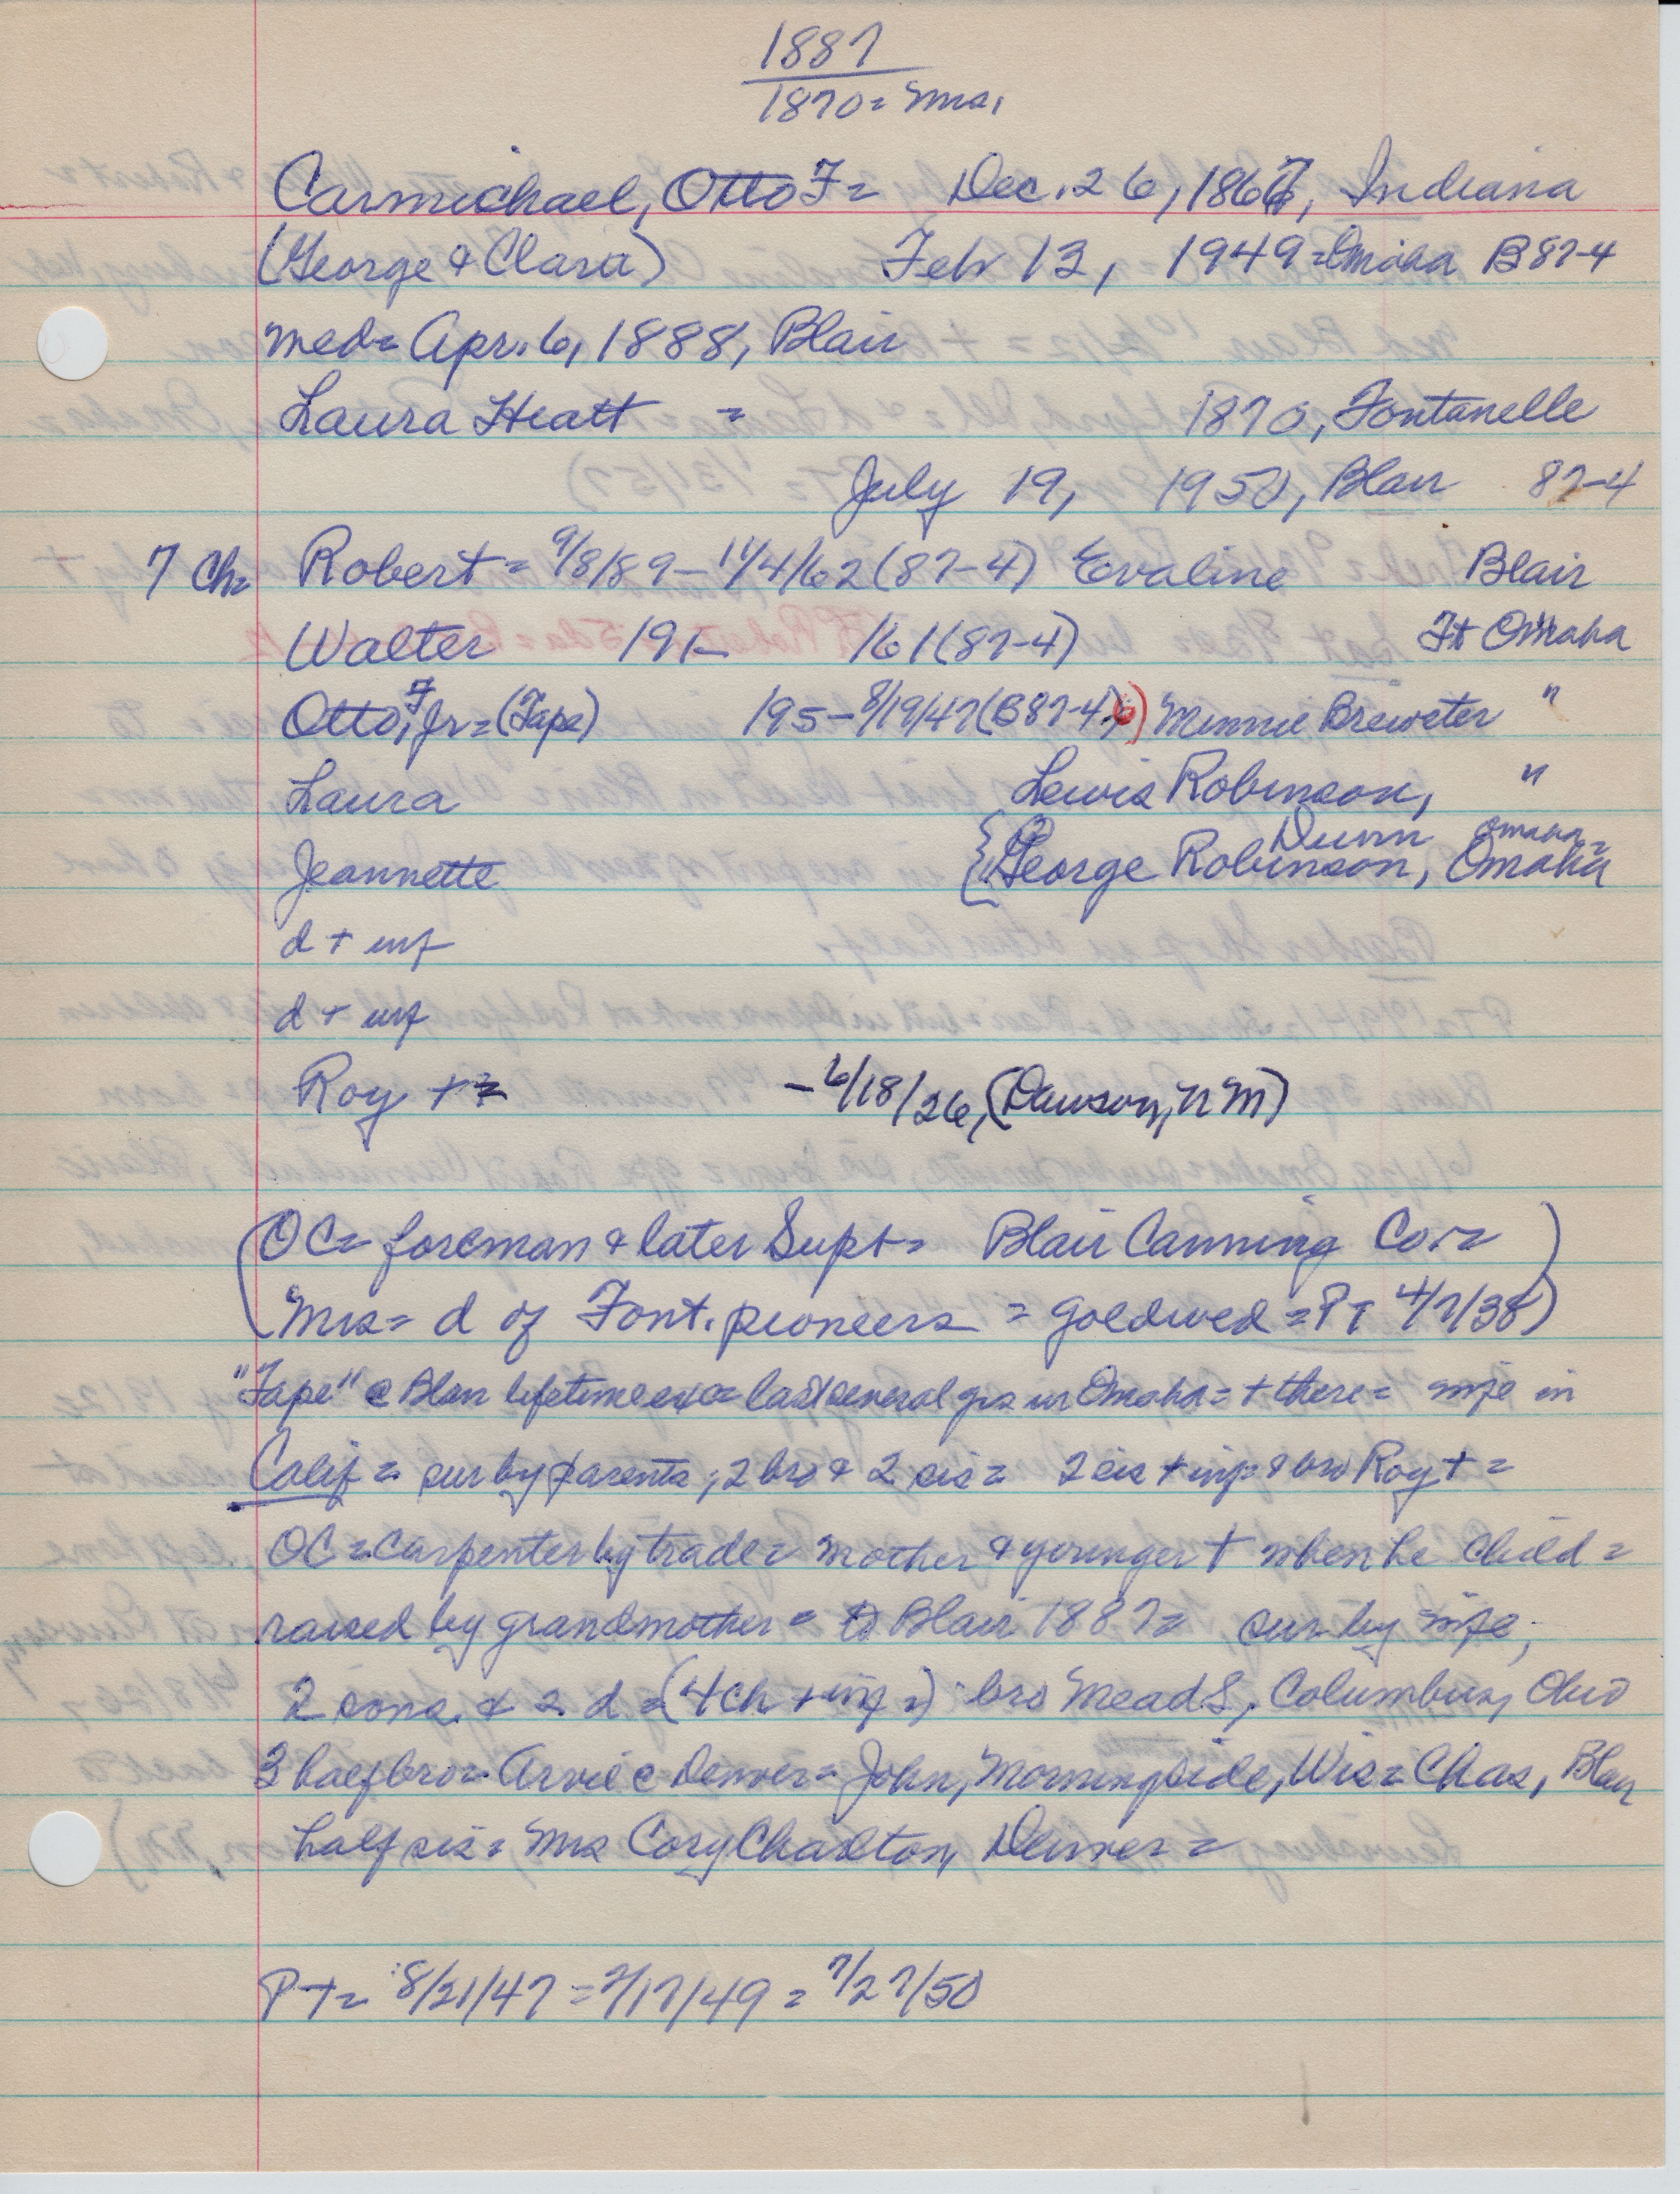 1887
1870 = Mrs.
Carmichael, Otto F = Dec. 26, 1867, Indiana
(George & Clara) Feb 13, 1949 = Omaha B 87-4
med = Apr. 6, 1888, Blair
Laura Hiatt = 1870, Fontanelle
July 19, 1950, Blair 87-4
7 Ch = Robert = 9/8/89 - 11/4/62 (87-4) Evaline Blair
Walter 191- 161 (87-4) Ft Omaha
Otto, F Jr = (Tape) 195 - 8/19/47 (B87-4) Minnie Brewster "
Laura Lewis Robinson, "
Dunn Omaha =
Jeannette { George Robinson, Omaha
d + inf
d + inf
Roy + = - 6/18/26, (Dawson, N M)
(OC = foreman & later Supt = Blair Canning Co. =
Mrs = d of Font. pioneers = gold wed = PT 4/7/38)
"Tape" @ Blair lifetime exc last several yrs in Omaha = + there = wife in
Calif = sur by parents, 2 bro & 2 sis = 2 sis + inf & bro Roy + =
OC = carpenter by trade = mother & younger + when he child =
raised by grandmother = to Blair 1887 = sur by wife,
2 sons & 2 d = (4 ch + inf =) bro Mead S, Columbus, Ohio
3 half bro = Arvie @ Denver = John, Morningside, Wis = Chas, Blair
half sis = Mrs Cory Charlton, Denver =
PT = 8/21/47 = 2/17/49 = 7/27/50